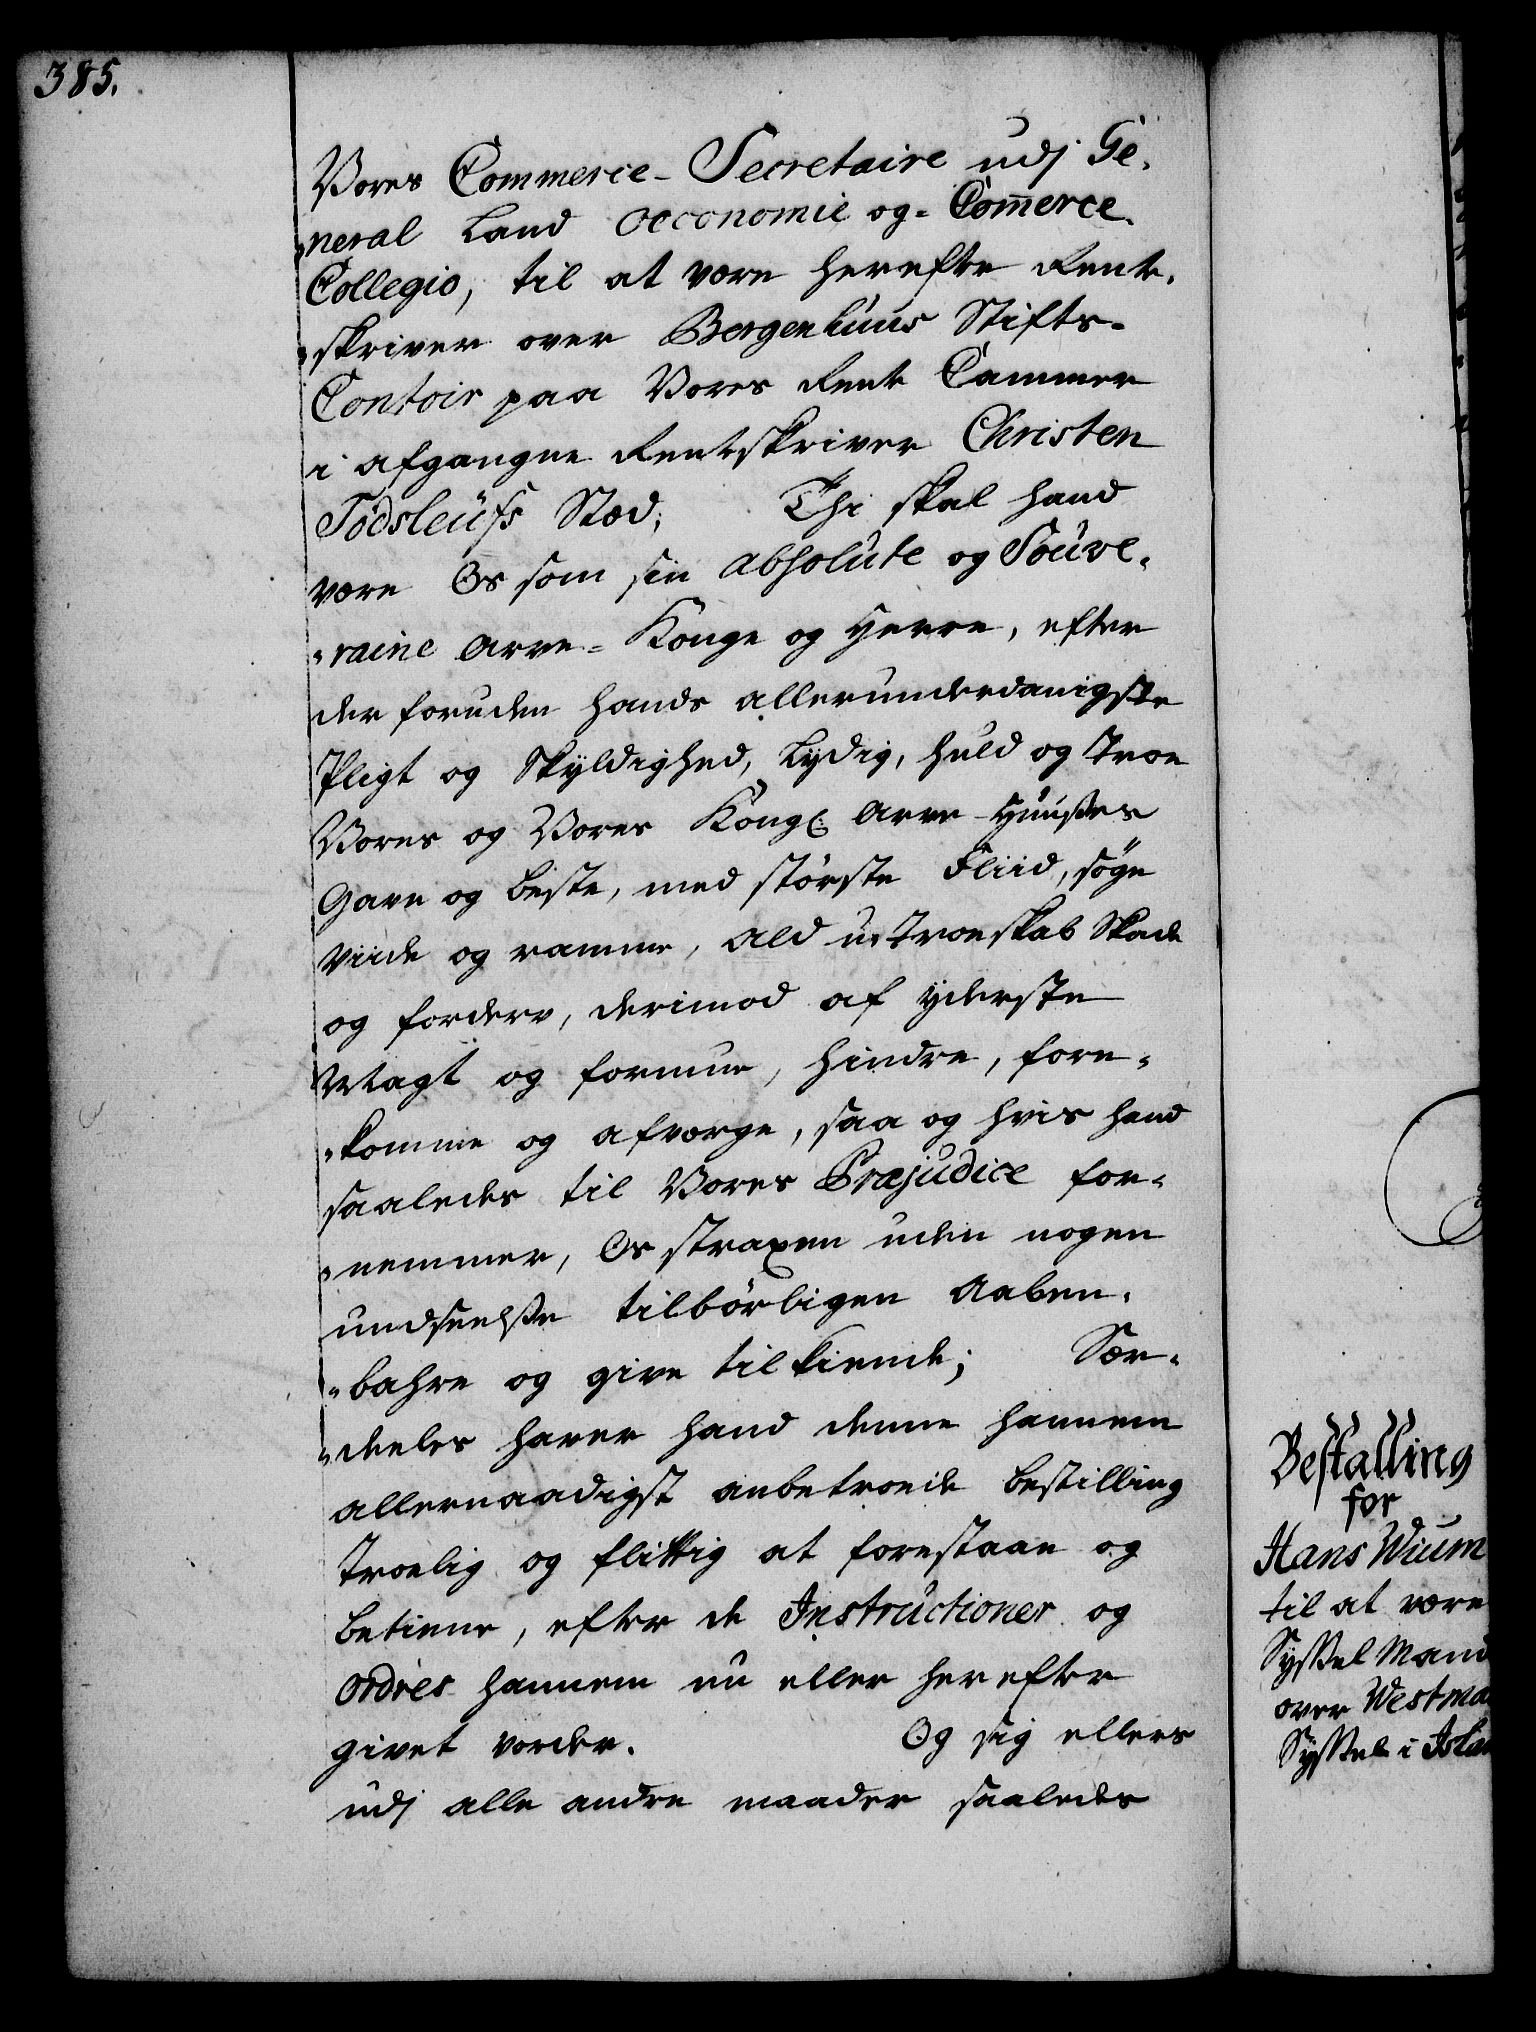 385.
Vores Commerce-Secretaire udj Ge-
„neral Land Oeconomie og= Com̄erce
Collegio, til at være herefter Rent-
„skriver over Bergenhuus Stifts-
Contoir paa Vores Rente Cammer
i afgangne Rentskriver Christen
Tödsleüfs Stæd; Thi skal hand
være Os som sin absolute og Souve-
„raine Arve=Konge og Herre, efter
der foruden hands allerunderdanigste
Pligt og Skyldighed, Lydig, huld og Troe
Vores og Vores Kongl: Arve-Huuses
Gavn og beste, med störste Fliid, söge
viide og ramme, Ald u-Troeskab Skade
og forderv, derimod af yderste
Magt og formue, hindre, fore-
„komme og afværge, saa og hvis hand
saaledes til Vores Præjudice for-
„nemmer, Os straxen uden nogen
undseelse tilbörligen Aaben-
„bahre og give tilkiende; Sær-
„deeles haver hand denne hannem
allernaadigst anbetroede bestilling
Troelig og flittig at forestaae og
betiene, efter de Instructioner og
Ordres hannem nu eller herefter
givet vorder. Og sig ellers
udj alle andre maader saaledes
Bestalling
for
Hans Wium
til at være
Syssel Mand
over Westma
Syssel i Isla